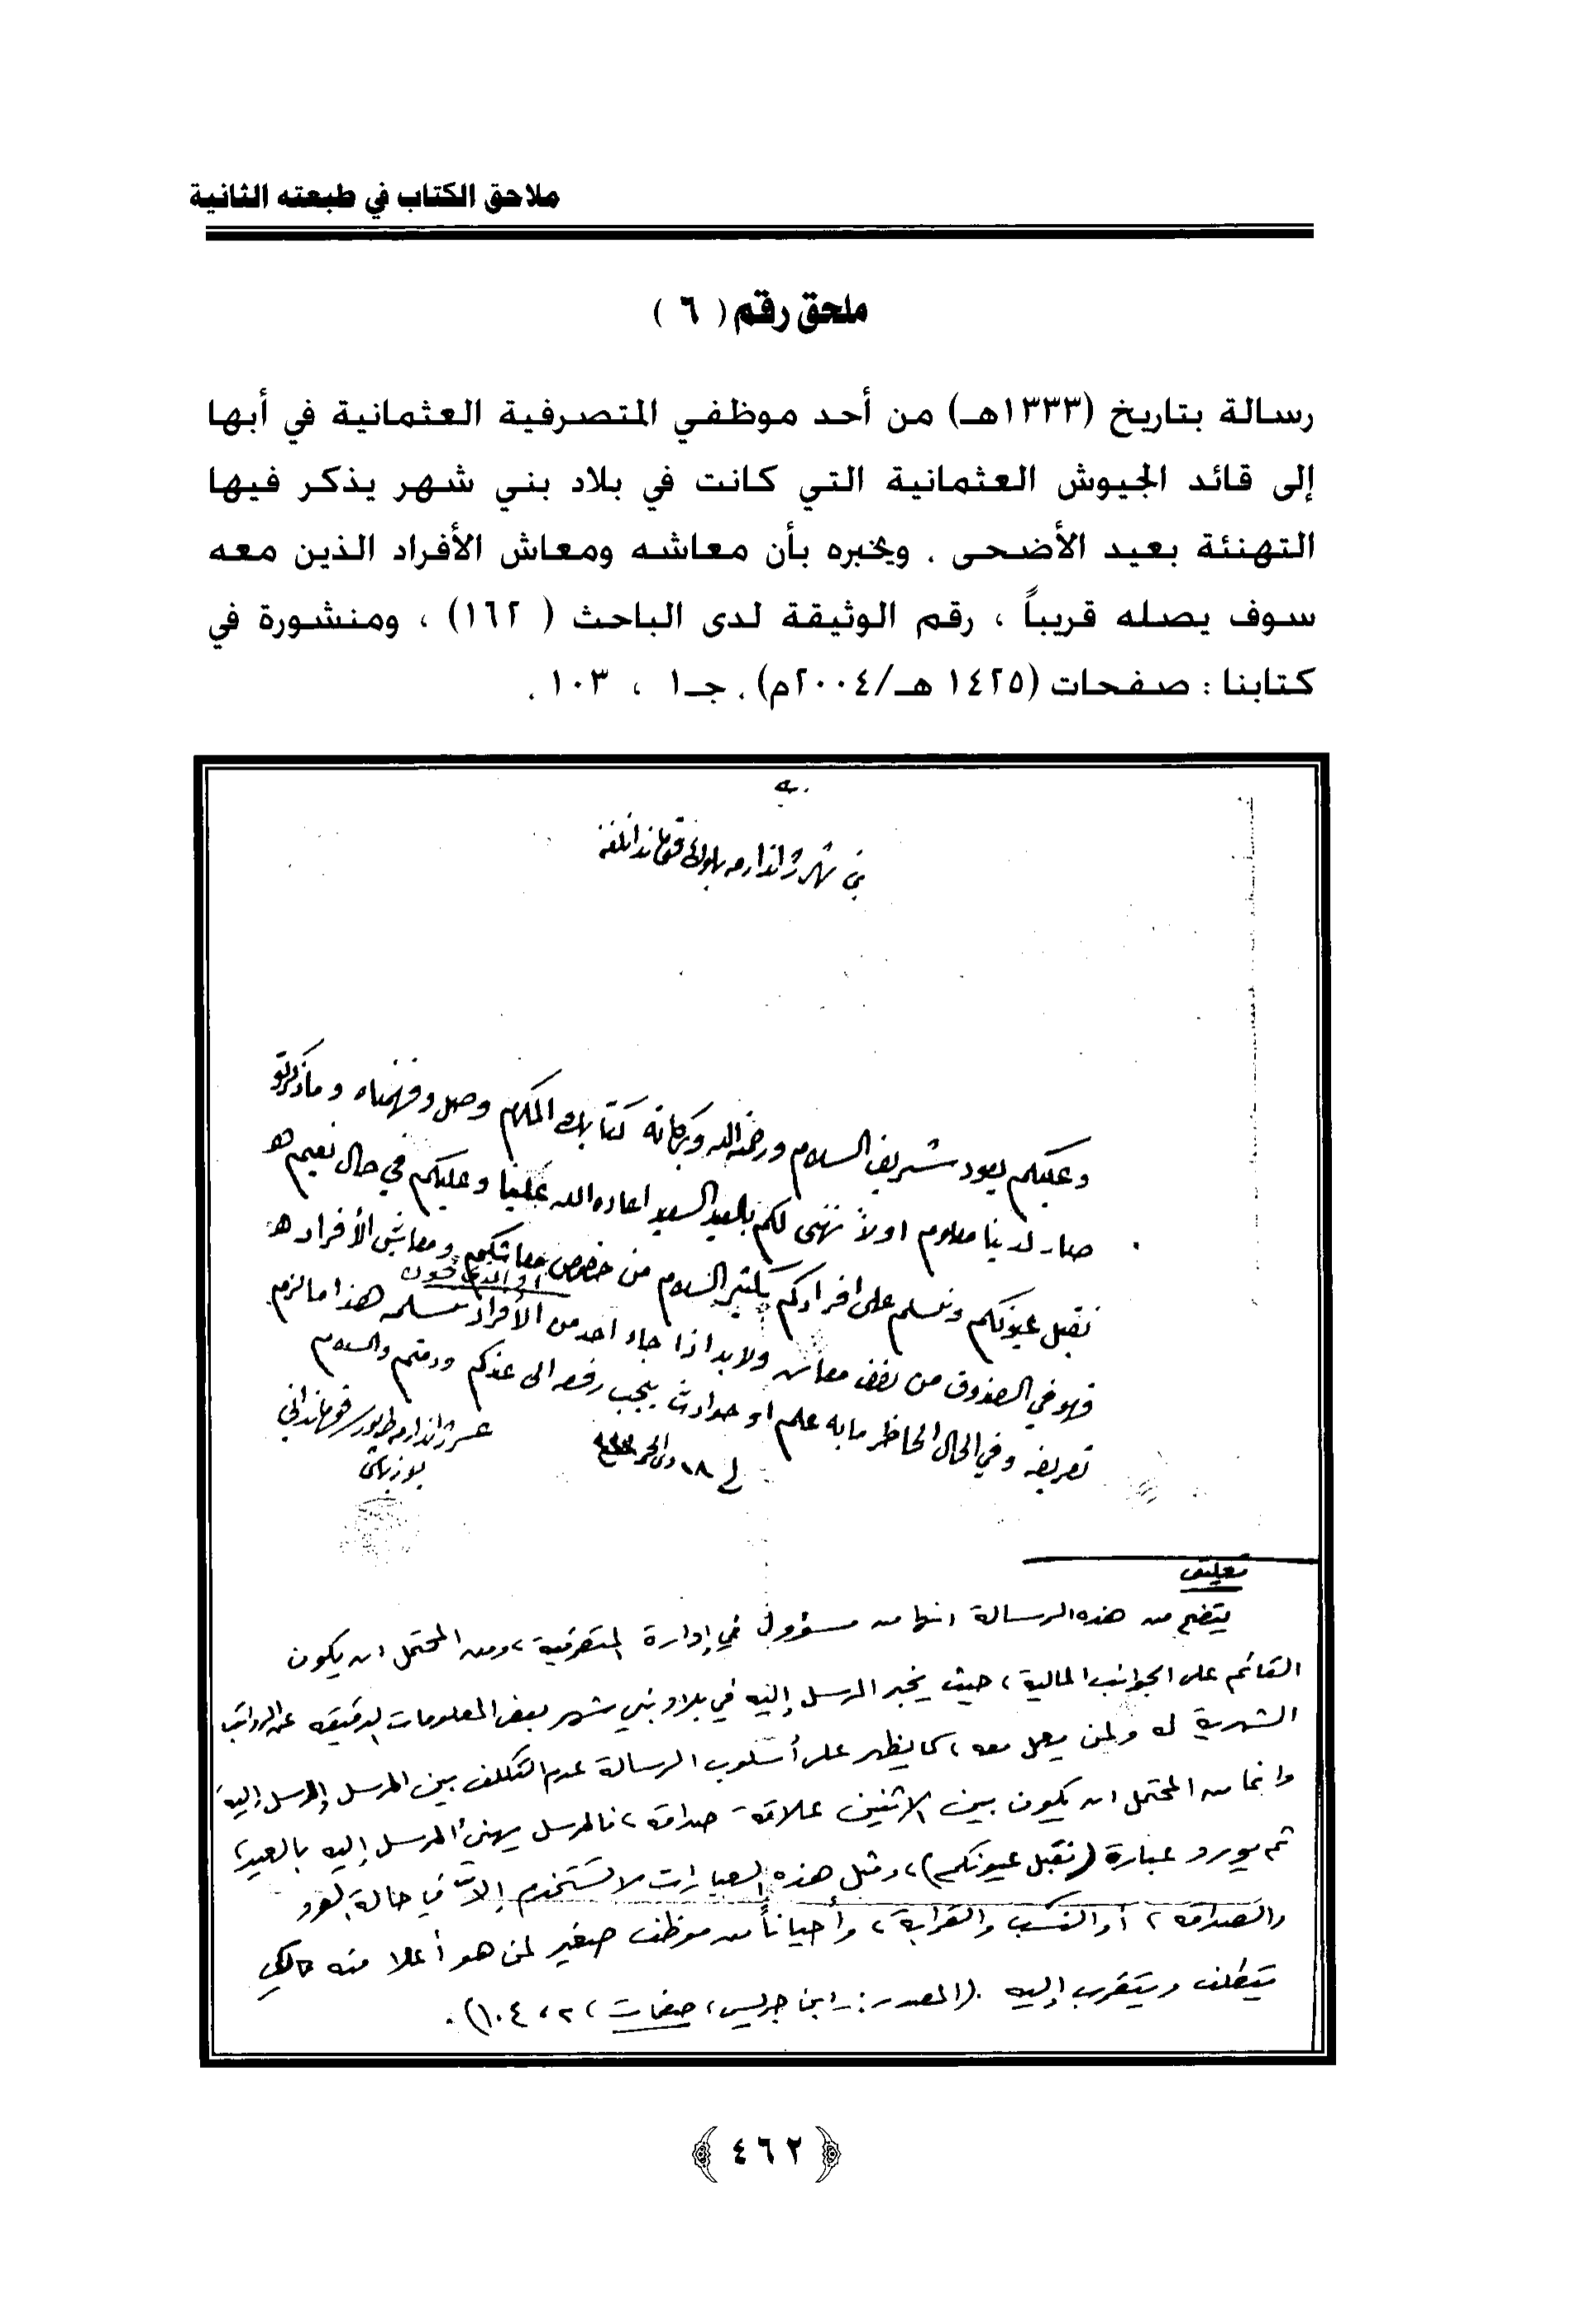 ملاحق الكتاب في طبعته الثانية
ملحق رقم ( ٦ )
رسالة بتاريخ (١٣٣٣هـ) من أحد موظفي المتصرفية العثمانية في أبها
إلى قائد الجيوش العثمانية التي كانت في بلاد بني شهر يذكر فيها
التهنئة بعيد الأضحى . ويخبره بأن معاشه ومعاش الأفراد الذين معه
سوف يصله قريباً ، رقم الوثيقة لدى الباحث ( ١٦٢ ) ، ومنشورة في
كتابنا : صفحات (١٤٢٥ هـ/٢٠٠٤م) . جـ١ ، ١٠٣ .
بني شهر ژاندارمه بلوك قوماندانلغنه
وعليكم يعود شريف السلام ورحمة الله وبركاته كتابك المكرم وصل وفهمناه وما ذكرتو
صار لدينا معلوم اولاً نهنى لكم بالعيد السعيد اعاده الله علينا وعليكم في حال نعيم هو
نقبل عيونكم ونسلم على افرادكم بكثير السلام من خصوص معاشكم ومعاش الأفراد
فهو في الصندوق من نصف معاش ولابد اذا جاء احد من الأفراد نسلمه هذا ما لزم
تعريفه وفي الحال الحاظر ما به علم او حوادث يجب رفعه الى عندكم ودمتم والسلام
في ١٨ ذي الحجة
عسير ژاندارمه طابور قومانداني
يوزباشى
تعليق
يتضح من هذه الرسالة انها من مسؤول في إدارة المتصرفية ، ومن المحتمل ان يكون
القائم على الجوانب المالية ، حيث يخبر المرسل إليه في بلاد بني شهر بعض المعلومات الدقيقة عن الرواتب
الشهرية له ولمن يعمل معه ، كما يظهر على أسلوب الرسالة عدم التكلف بين المرسل والمرسل إليه ،
وانما من المحتمل ان يكون بين الاثنين علاقة صداقة ، فالمرسل يهنئ المرسل إليه بالعيد ،
ثم يورد عبارة (نقبل عيونكم) ، ومثل هذه العبارات لا تستخدم إلاّ في حالة الود
والصداقة ، أو النسب والقرابة ، وأحياناً من موظف صغير لمن هو أعلا منه لكي
يتطلف ويتقرب إليه . (المصدر : ابن جريس ، صفحات ، ٢ ، ١٠٤) .
٤٦٢